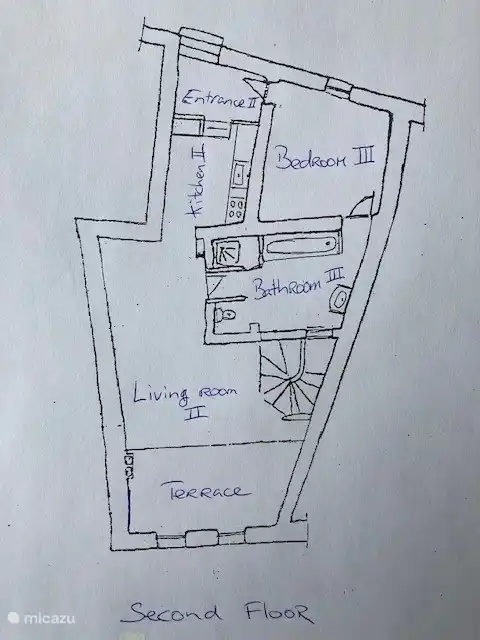 Entrance II
Bedroom III
Kitchen II
Bathroom III
Living room
II
Terrace
Second Floor
micazu